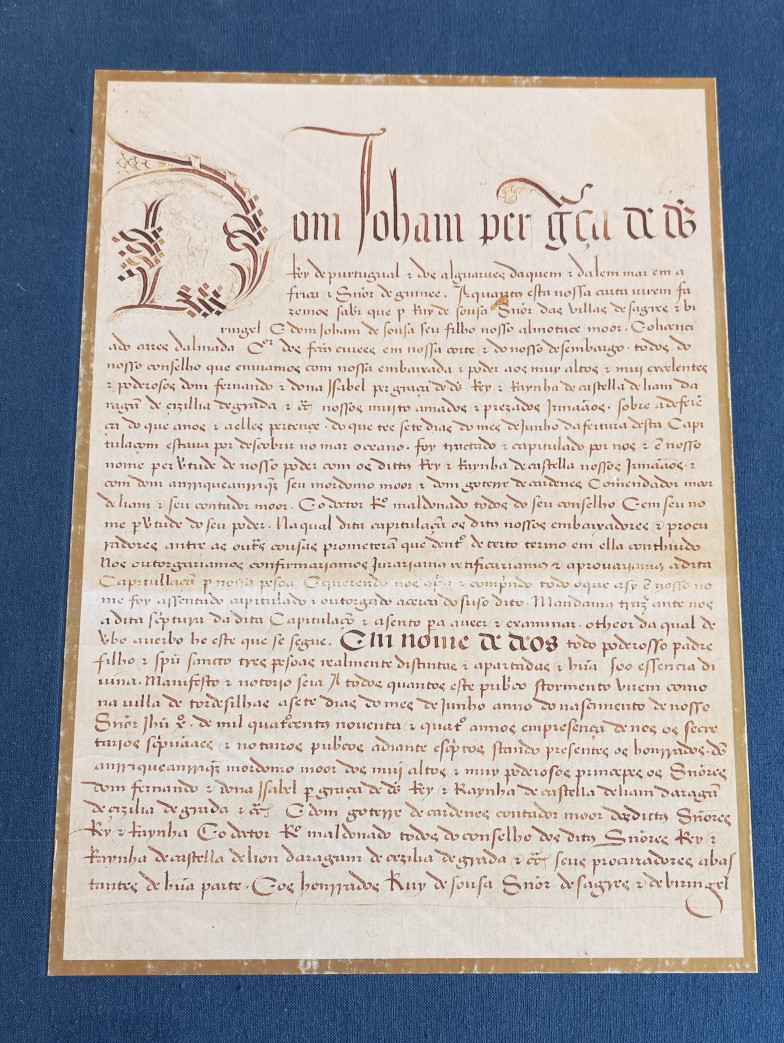 Dom Joham per gr̃ça de ds̃
Rey de purtugual ⁊ dos alguarues daquem ⁊ dalem mar em a
frica ⁊ Sñor de guinee. A quantos esta nossa carta virem fa
zemos saber que p Ruy de sousa Sñor das villas de sagres ⁊ bi
ringel E dom Joham de sousa seu filho nosso almotace moor. E o licenci
ado aires dalmada Cor dos fectos ciuees em nossa corte ⁊ do nosso desembargo. todos do
nosso conselho que enuiamos com nossa embaixada ⁊ poder aos muy altos ⁊ mui excelentes
⁊ poderosos dom fernando ⁊ dona Isabel per graça de ds̃ Rey ⁊ Raynha de castella de liam da
ragam de cizillia de grada ⁊ cc̃ nossos muito amados ⁊ prezados Irmaãos. sobre a deferẽ
ça do que a nos ⁊ a elles pertence. do que tee sete dias do mes de Junho da feitura desta Capi
tulaçom estaua por descobrir no mar oceano. foy trautado ⁊ capitulado por nos ⁊ ẽ nosso
nome per vtude de nosso poder com os ditos Rey ⁊ Raynha de castella nossos Irmãaos. ⁊
com dom anrrique anrriqz̃ seu mordomo moor ⁊ dom goterre de cardenes Comendador mor
de liam ⁊ seu contador moor. E o doctor Ro maldonado todos do seu conselho E em seu no
me p vtude do seu poder. Na qual dita capitulaçã os ditos nossos embaixadores ⁊ procu
radores antre as outas cousas prometerã que dento de certo termo em ella conthiudo
Nos outorgariamos confirmariamos Jurariamos retificariamos ⁊ aprouariamos a dita
Capitullaçã p nossa pesoa E querendo nos ⁊ compindo todo o que asy ẽ nosso no
me foy assentado capitulado ⁊ outorgado acerca do suso dito. Mandamos traz̃ ante nos
a dita scptura da dita Capitulaçõ ⁊ asento pa a veer ⁊ examinar. o theor da qual de
vbo a verbo he este que se segue. Em nome de deos todo poderosso padre
filho ⁊ spũ sancto tres pesoas realmente distintas ⁊ apartadas ⁊ hũa soo essencia di
uina. Manifesto ⁊ notorio seia A todos quantos este pubco stormento virem como
na villa de tordesilhas a sete dias do mes de Junho anno do nascimento de nosso
Sñor Ihũ xo. de mil quatocentos nouenta ⁊ quato annos em presença de nos os secre
tarios scpuãaes ⁊ notarios pubcos adiante escptos stando presentes os honrrados dõ
anrrique anrriqz̃ mordomo moor dos mui altos ⁊ muy poderosos principes os Sñores
dom fernando ⁊ dona Isabel p graça de ds̃ Rey ⁊ Raynha de castella de liam daragã
de cizilia de grada ⁊ cc̃ E dom goterre de cardenes contador moor dos ditos Sñores
Rey ⁊ Raynha E o doctor Ro maldonado todos do conselho dos ditos Sñores Rey ⁊
Raynha de castella de lion daragam de cezilia de grada ⁊ cc̃ seus procuradores abas
tantes de hũa parte. E os honrrados Ruy de sousa Sñor de sagres ⁊ de biringel